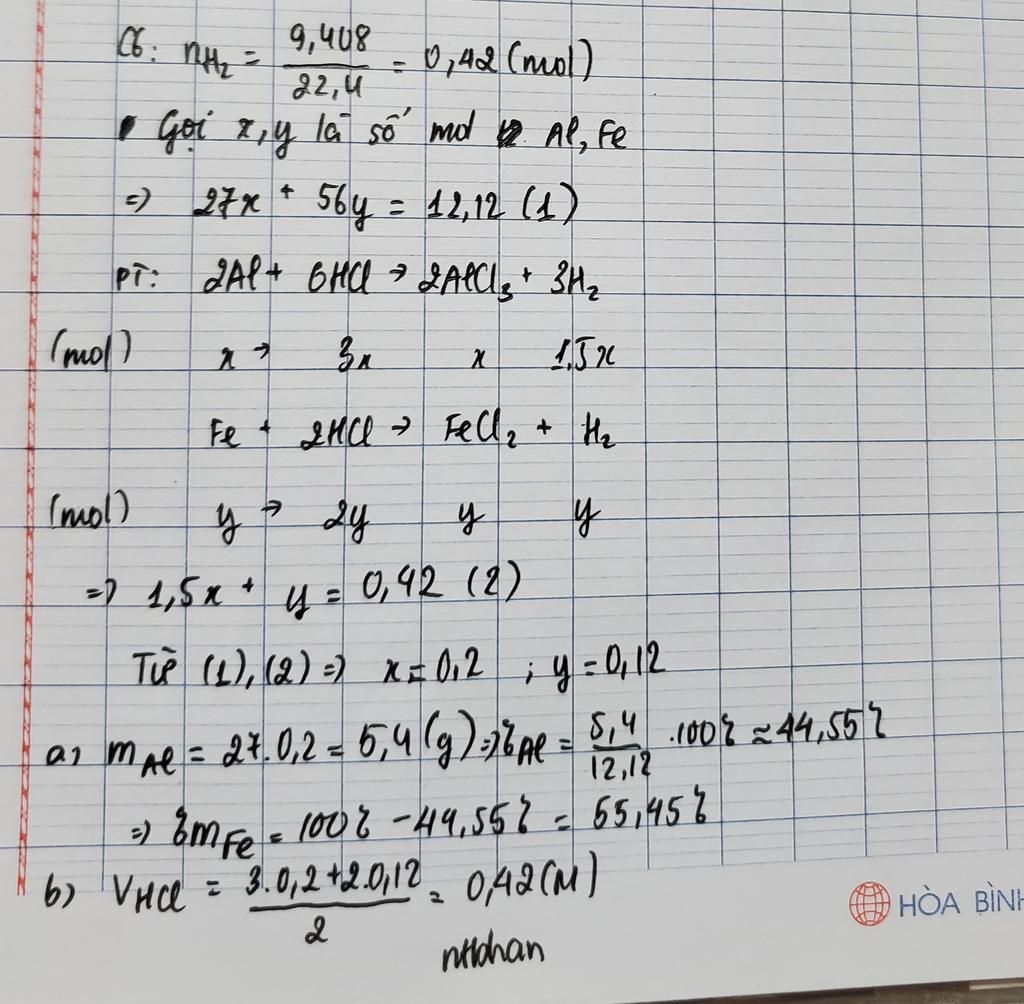 C6: nH₂ = 9,408/22,4 = 0,42 (mol)
Gọi x, y là số mol Al, Fe
=> 27x + 56y = 12,12 (1)
PT: 2Al + 6HCl → 2AlCl₃ + 3H₂
(mol) x → 3x x 1,5x
Fe + 2HCl → FeCl₂ + H₂
(mol) y → 2y y y
=> 1,5x + y = 0,42 (2)
Từ (1), (2) => x = 0,2 ; y = 0,12
a) mAl = 27.0,2 = 5,4 (g) => %Al = 5,4/12,12 .100% ≈ 44,55%
=> %mFe = 100% - 44,55% = 55,45%
b) VHCl = (3.0,2+2.0,12)/2 = 0,42 (M)
HÒA BÌNH